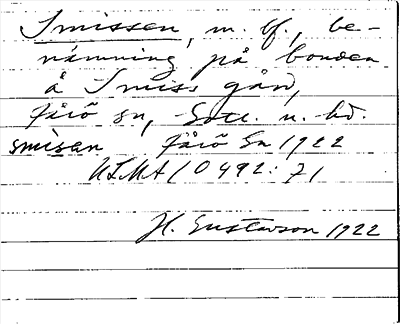 Smissen, m. bf., be-
nämning på bonden
å Smiss gård,
Fårö sn, Gotl. n. hd.
smisan Fårö Sn 1922
ULMA 10492:71
H. Gustavson 1922